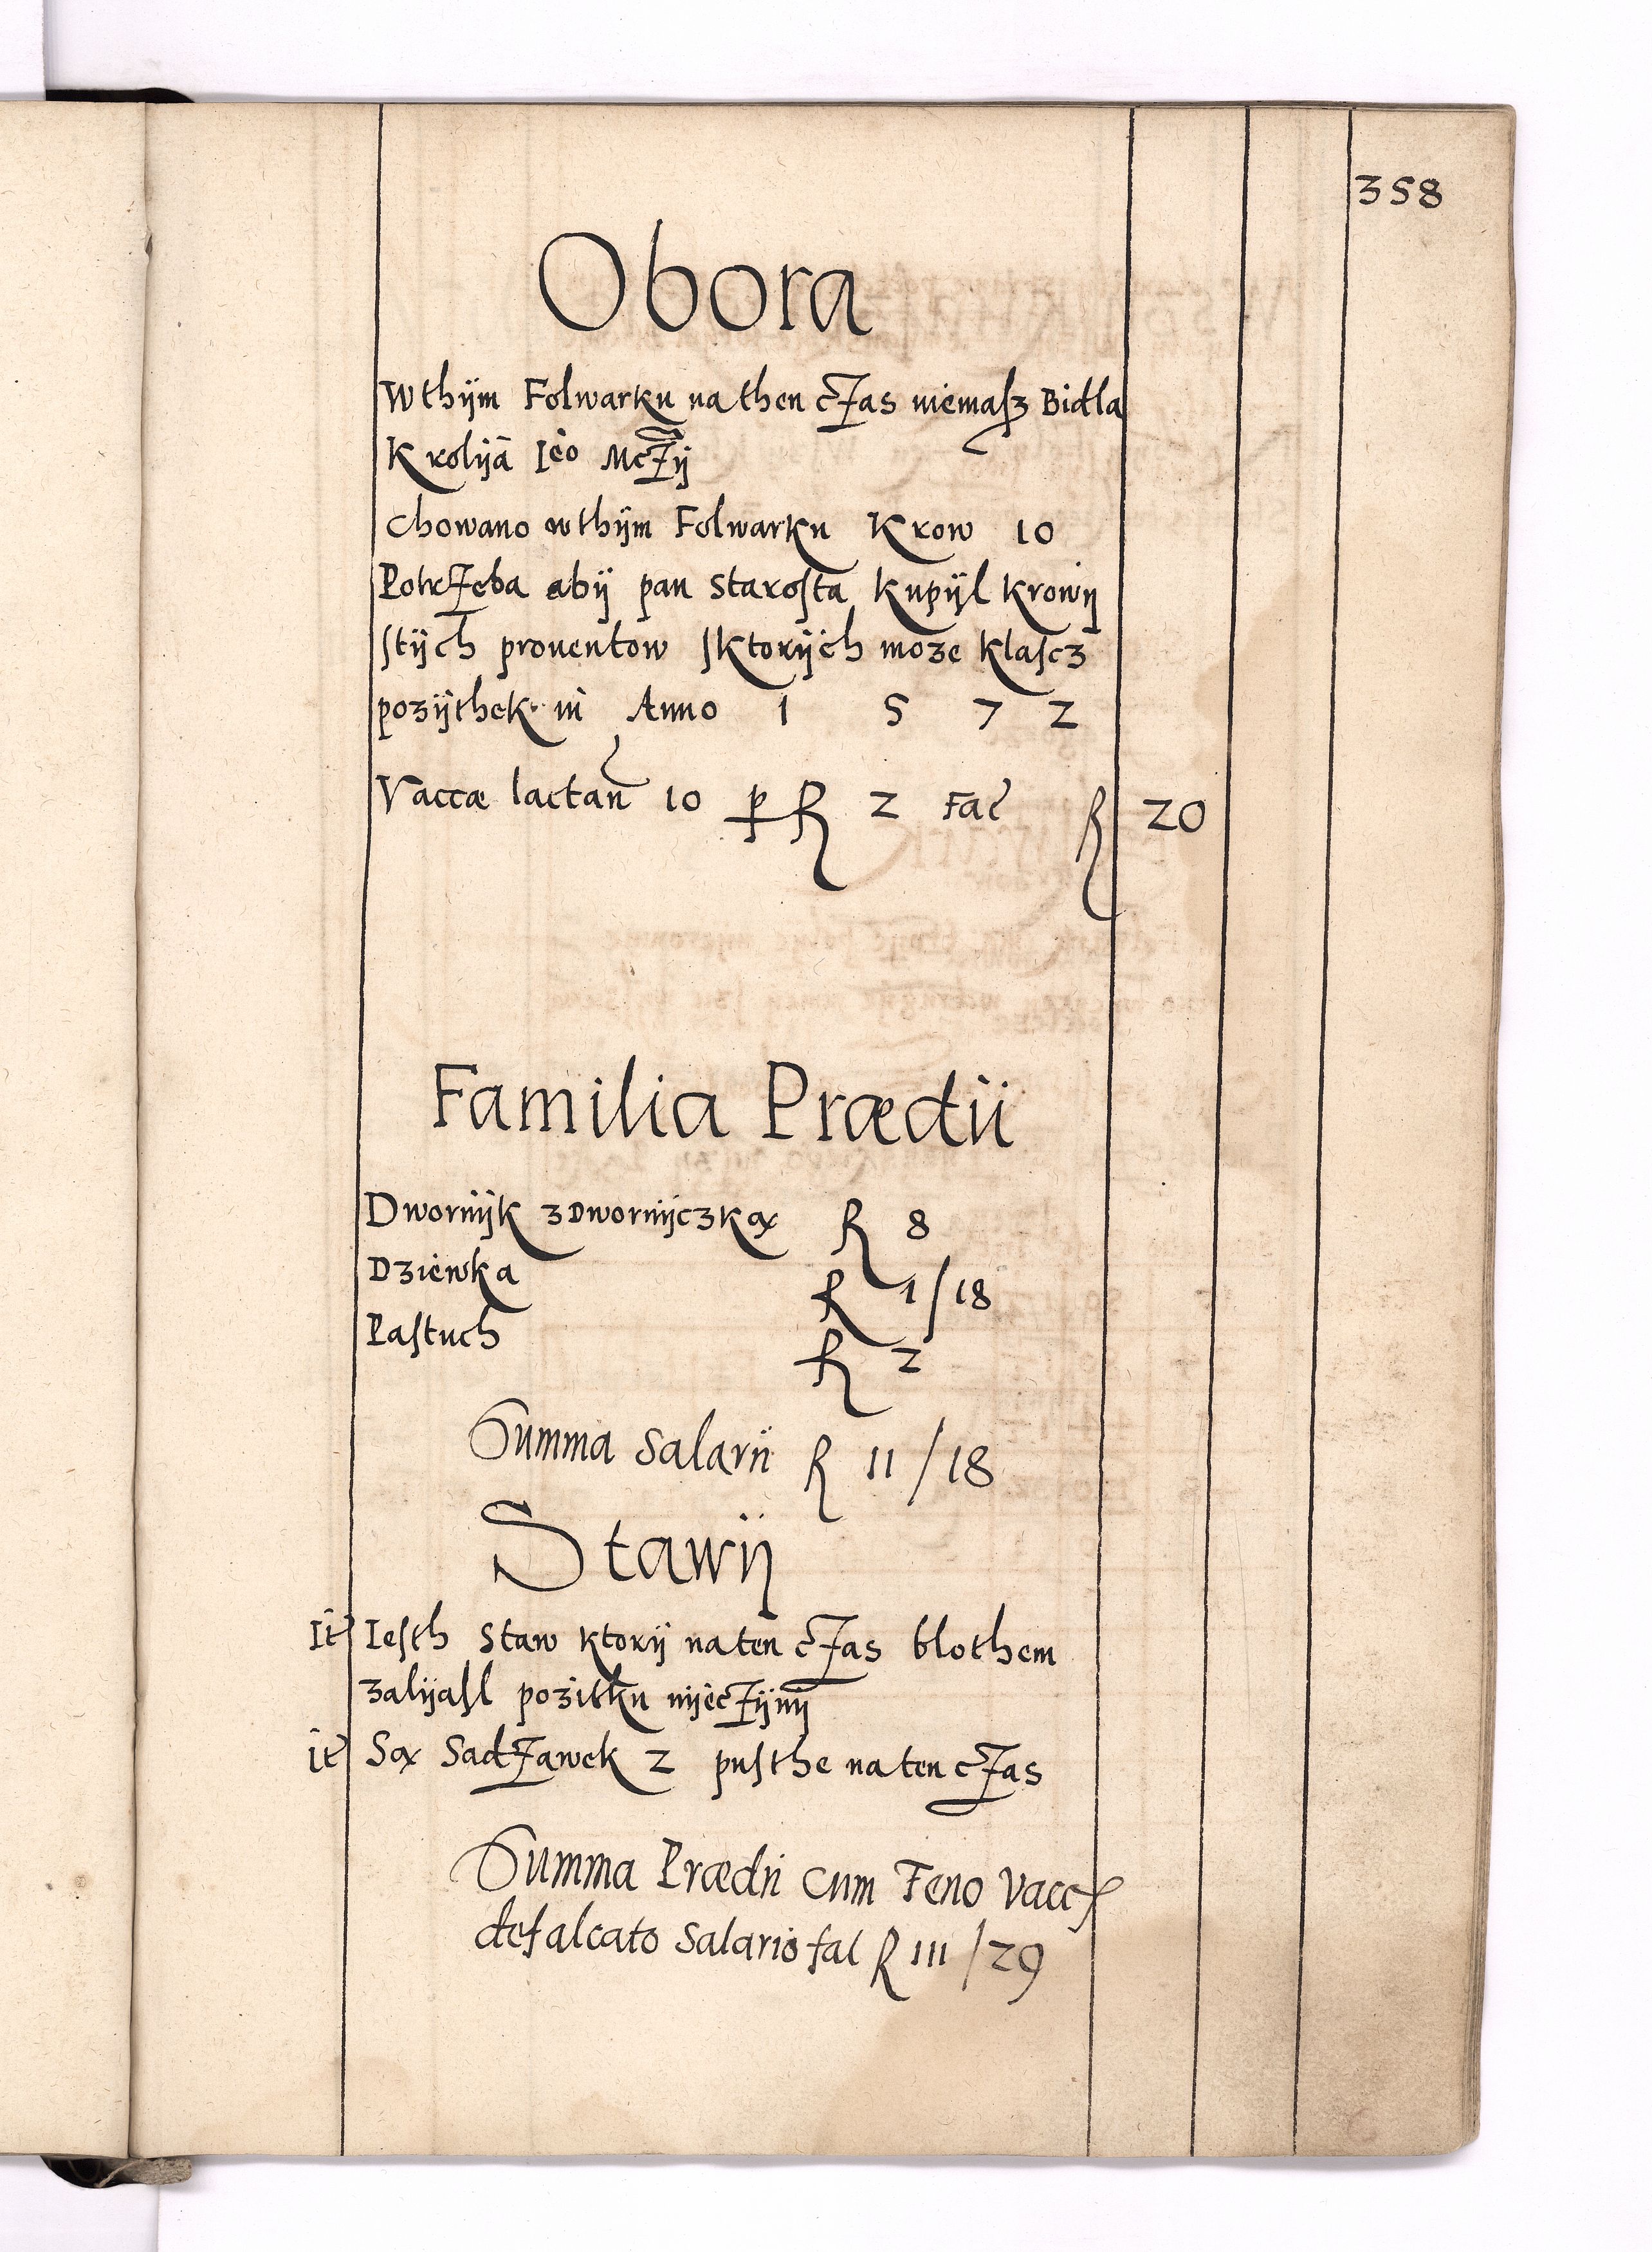 358
Obora
W thijm Folwarku na then cżas niemasz Bidla
Krolijā Ieo Mcżij
Chowano w thijm Folwarku Krow 10
Potrżeba abij pan Starosta Kupijl Krowij
stijch prouentow sktorijch moze Klascz
pozijthek in Anno 1 5 7 2
Vaccæ lactan̄ 10 p R 2 Fac R 20
Familia Prædii
Dwornijk z Dwornijczką R 8
Dziewka R 1/18
Pastuch R 2
Summa Salarii R 11/18
Stawij
It Iesth Staw ktorij na ten cżas blothem
zalijasl pozitku niiecżijnij
it Są Sadżawek 2 pusthe na ten cżas
Summa Prædii cum Feno Vacc
defalcato Salario fac R 111/29